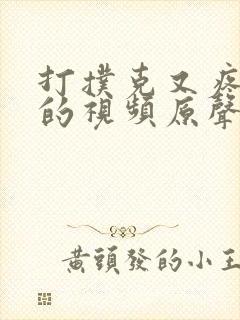 打撲克又疼
的視頻原聲
黃頭發的小王